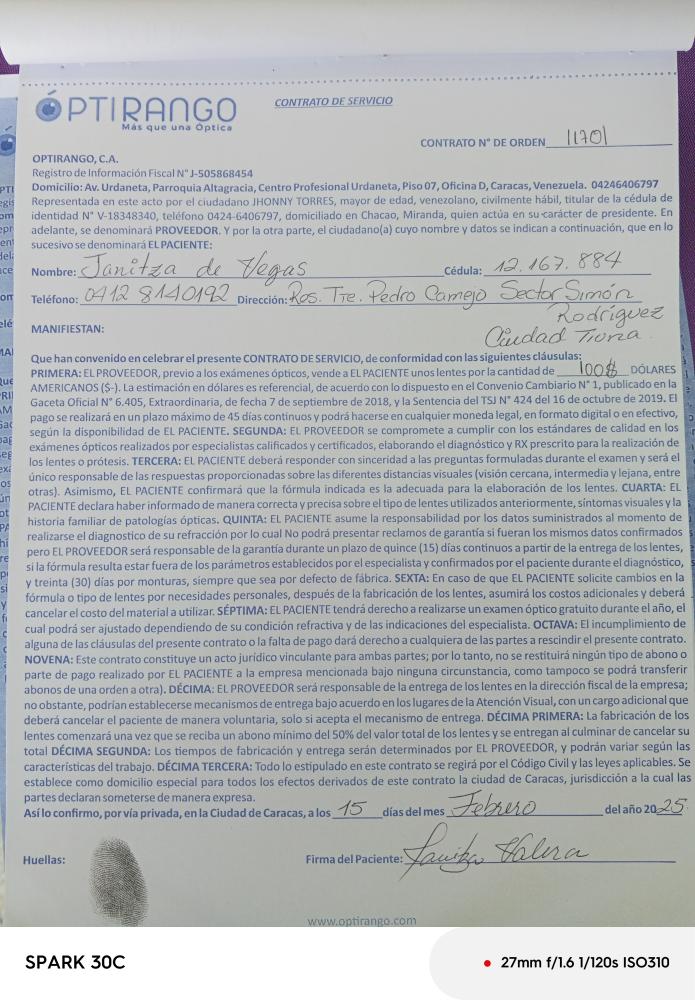 ÓPTIRANGO
Más que una Óptica
CONTRATO DE SERVICIO
CONTRATO N° DE ORDEN 11701
OPTIRANGO, C.A.
Registro de Información Fiscal N° J-505868454
Domicilio: Av. Urdaneta, Parroquia Altagracia, Centro Profesional Urdaneta, Piso 07, Oficina D, Caracas, Venezuela. 04246406797
Representada en este acto por el ciudadano JHONNY TORRES, mayor de edad, venezolano, civilmente hábil, titular de la cédula de
identidad N° V-18348340, teléfono 0424-6406797, domiciliado en Chacao, Miranda, quien actúa en su carácter de presidente. En
adelante, se denominará PROVEEDOR. Y por la otra parte, el ciudadano(a) cuyo nombre y datos se indican a continuación, que en lo
sucesivo se denominará EL PACIENTE:
Nombre: Janitza de Vegas Cédula: 12.167.884
Teléfono: 0412 8140192 Dirección: Res. Tre. Pedro Camejo Sector Simón
Rodríguez
Ciudad Tiuna
MANIFIESTAN:
Que han convenido en celebrar el presente CONTRATO DE SERVICIO, de conformidad con las siguientes cláusulas:
PRIMERA: EL PROVEEDOR, previo a los exámenes ópticos, vende a EL PACIENTE unos lentes por la cantidad de 100$ DÓLARES
AMERICANOS ($-). La estimación en dólares es referencial, de acuerdo con lo dispuesto en el Convenio Cambiario N° 1, publicado en la
Gaceta Oficial N° 6.405, Extraordinaria, de fecha 7 de septiembre de 2018, y la Sentencia del TSJ N° 424 del 16 de octubre de 2019. El
pago se realizará en un plazo máximo de 45 días continuos y podrá hacerse en cualquier moneda legal, en formato digital o en efectivo,
según la disponibilidad de EL PACIENTE. SEGUNDA: EL PROVEEDOR se compromete a cumplir con los estándares de calidad en los
exámenes ópticos realizados por especialistas calificados y certificados, elaborando el diagnóstico y RX prescrito para la realización de
los lentes o prótesis. TERCERA: EL PACIENTE deberá responder con sinceridad a las preguntas formuladas durante el examen y será el
único responsable de las respuestas proporcionadas sobre las diferentes distancias visuales (visión cercana, intermedia y lejana, entre
otras). Asimismo, EL PACIENTE confirmará que la fórmula indicada es la adecuada para la elaboración de los lentes. CUARTA: EL
PACIENTE declara haber informado de manera correcta y precisa sobre el tipo de lentes utilizados anteriormente, síntomas visuales y la
historia familiar de patologías ópticas. QUINTA: EL PACIENTE asume la responsabilidad por los datos suministrados al momento de
realizarse el diagnostico de su refracción por lo cual No podrá presentar reclamos de garantía si fueran los mismos datos confirmados
pero EL PROVEEDOR será responsable de la garantía durante un plazo de quince (15) días continuos a partir de la entrega de los lentes,
si la fórmula resulta estar fuera de los parámetros establecidos por el especialista y confirmados por el paciente durante el diagnóstico,
y treinta (30) días por monturas, siempre que sea por defecto de fábrica. SEXTA: En caso de que EL PACIENTE solicite cambios en la
fórmula o tipo de lentes por necesidades personales, después de la fabricación de los lentes, asumirá los costos adicionales y deberá
cancelar el costo del material a utilizar. SÉPTIMA: EL PACIENTE tendrá derecho a realizarse un examen óptico gratuito durante el año, el
cual podrá ser ajustado dependiendo de su condición refractiva y de las indicaciones del especialista. OCTAVA: El incumplimiento de
alguna de las cláusulas del presente contrato o la falta de pago dará derecho a cualquiera de las partes a rescindir el presente contrato.
NOVENA: Este contrato constituye un acto jurídico vinculante para ambas partes; por lo tanto, no se restituirá ningún tipo de abono o
parte de pago realizado por EL PACIENTE a la empresa mencionada bajo ninguna circunstancia, como tampoco se podrá transferir
abonos de una orden a otra). DÉCIMA: EL PROVEEDOR será responsable de la entrega de los lentes en la dirección fiscal de la empresa;
no obstante, podrían establecerse mecanismos de entrega bajo acuerdo en los lugares de la Atención Visual, con un cargo adicional que
deberá cancelar el paciente de manera voluntaria, solo si acepta el mecanismo de entrega. DÉCIMA PRIMERA: La fabricación de los
lentes comenzará una vez que se reciba un abono mínimo del 50% del valor total de los lentes y se entregan al culminar de cancelar su
total DÉCIMA SEGUNDA: Los tiempos de fabricación y entrega serán determinados por EL PROVEEDOR, y podrán variar según las
características del trabajo. DÉCIMA TERCERA: Todo lo estipulado en este contrato se regirá por el Código Civil y las leyes aplicables. Se
establece como domicilio especial para todos los efectos derivados de este contrato la ciudad de Caracas, jurisdicción a la cual las
partes declaran someterse de manera expresa.
Así lo confirmo, por vía privada, en la Ciudad de Caracas, a los 15 días del mes Febrero del año 2025
Huellas: Firma del Paciente: Janitza Valera
www.optirango.com
SPARK 30C 27mm f/1.6 1/120s ISO310